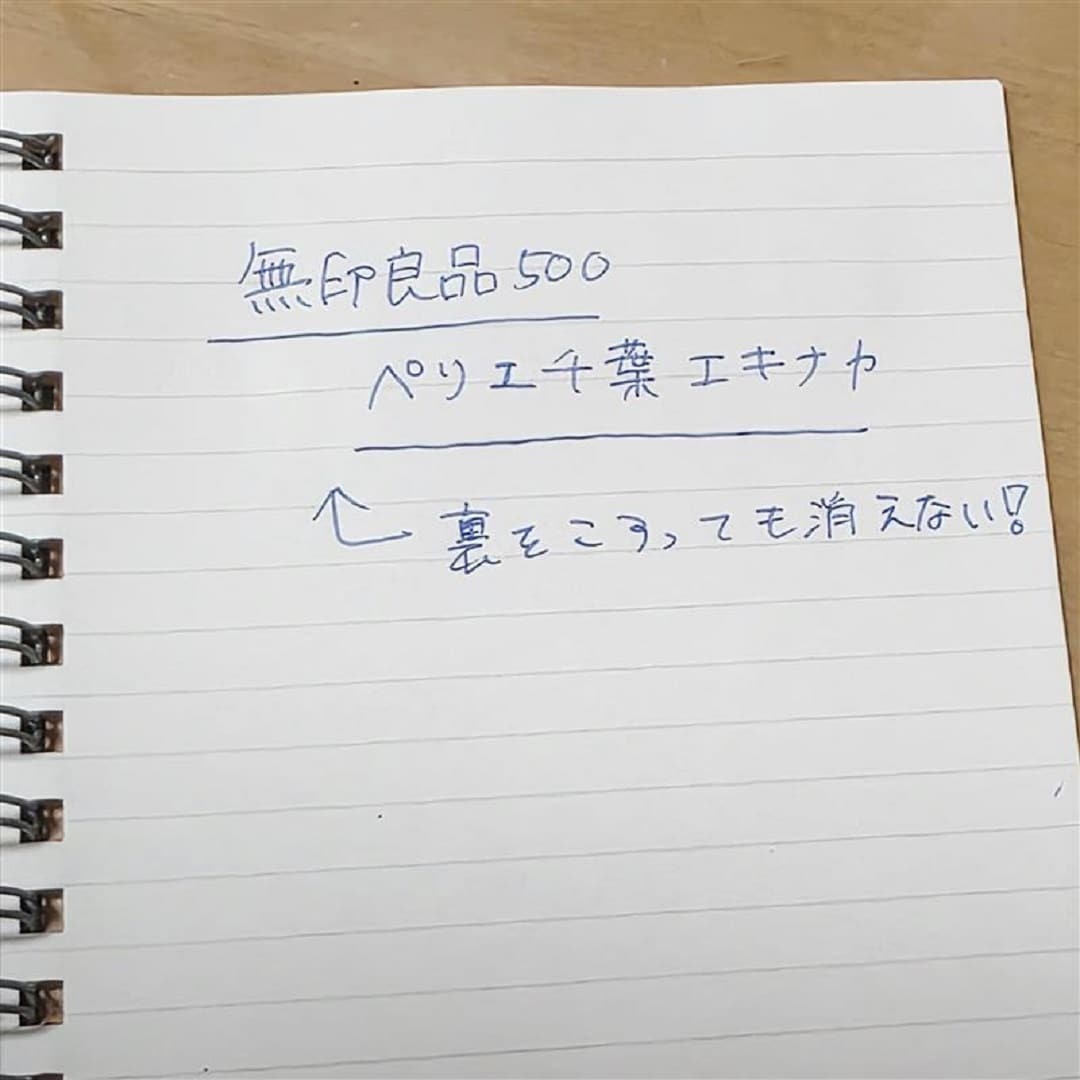 無印良品500
ペリエ千葉 エキナカ
裏をこすっても消えない!